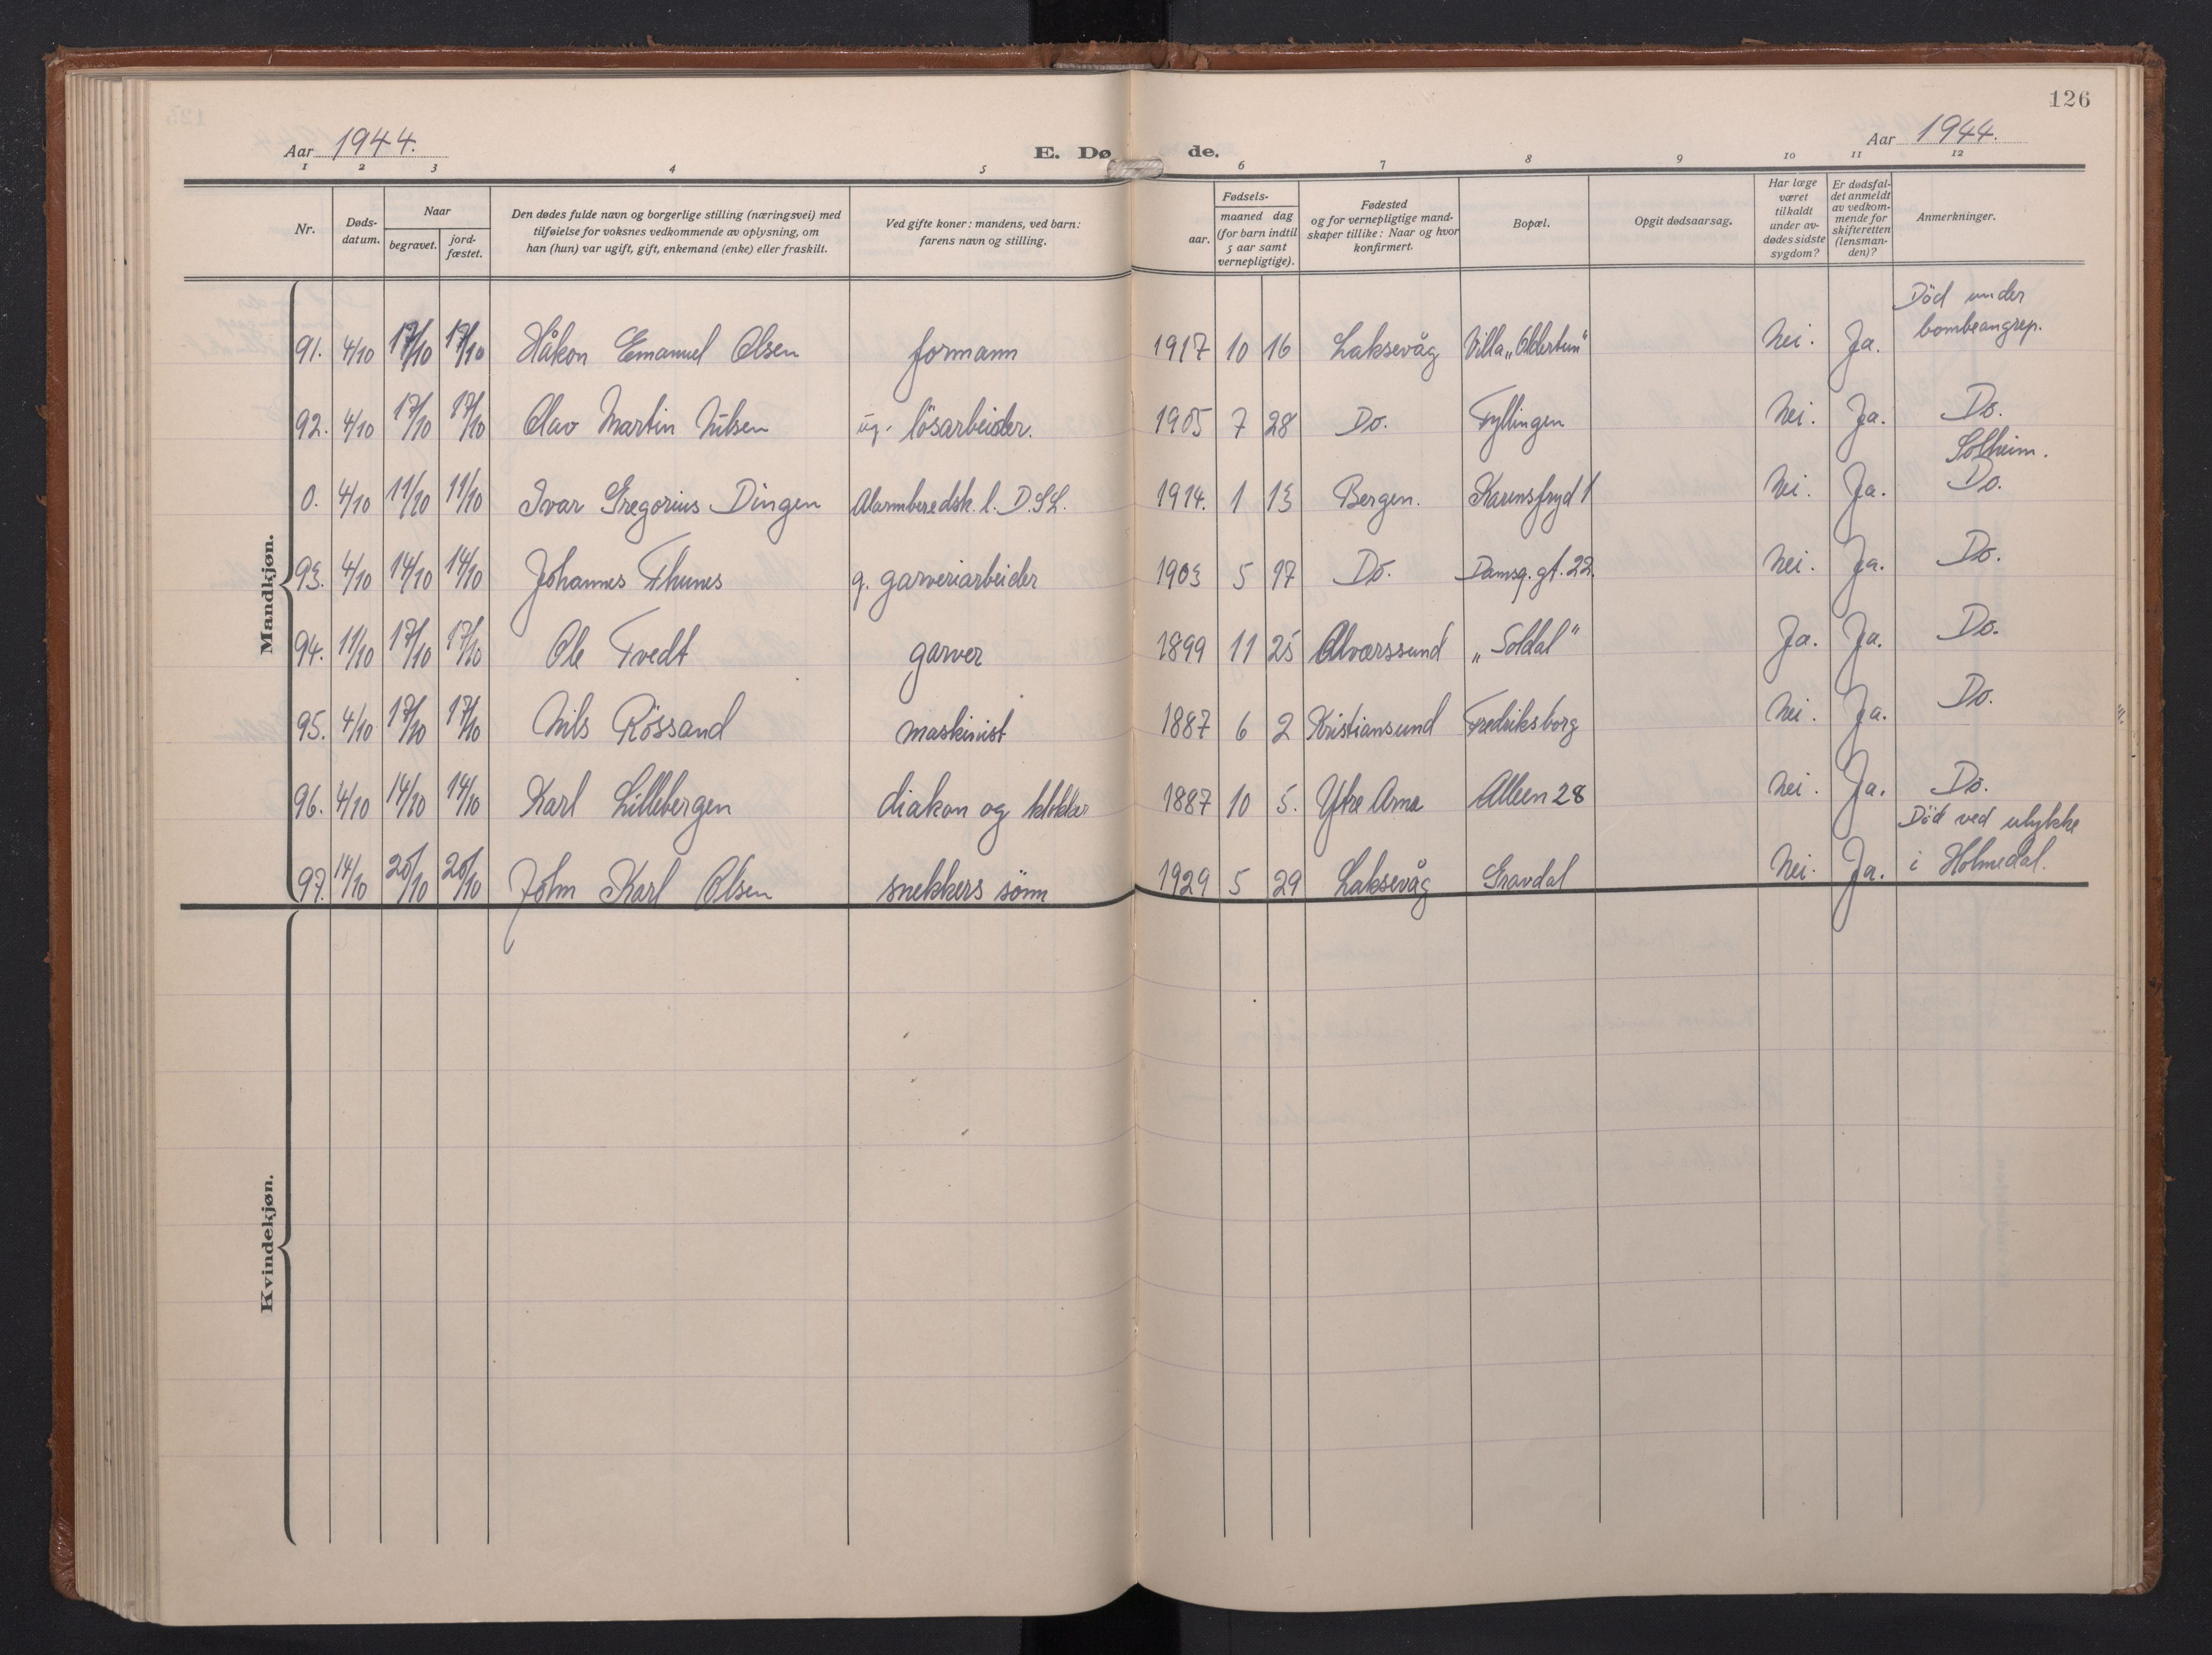 126
Aar 1944.
E. Døde.
Aar 1944.
1 2 3 4 5 6 7 8 9 10 11 12
Nr.
Døds-
datum.
Naar
begravet.
jord-
fæstet.
Den dødes fulde navn og borgerlige stilling (næringsvei) med
tilføielse for voksnes vedkommende av oplysning, om
han (hun) var ugift, gift, enkemand (enke) eller fraskilt.
Ved gifte koner: mandens, ved barn:
farens navn og stilling.
Fødsels-
aar.
maaned dag
(for barn indtil
5 aar samt
vernepligtige).
Fødested
og for vernepligtige mand-
skaper tillike: Naar og hvor
konfirmert.
Bopæl.
Opgit dødsaarsag.
Har læge
været
tilkaldt
under av-
dødes sidste
sygdom?
Er dødsfal-
det anmeldt
av vedkom-
mende for
skifteretten
(lensman-
den)?
Anmerkninger.
Mandkjøn.
91. 4/10 17/10 17/10 Håkon Emanuel Olsen formann 1917 10 16 Laksevåg Villa „Oldertun" Nei. Ja. Död under
bombeangrep.
92. 4/10 17/10 17/10 Olav Martin Nilsen ug. lösarbeider. 1905 7 28 Do. Fyllingen Nei. Ja. Do.
Solheim.
0. 4/10 11/10 11/10 Ivar Gregorius Dingen Alarmberedsk. l. D.S.L. 1914. 1 13 Bergen. Karensfryd 1 Nei. Ja. Do.
93. 4/10 14/10 14/10 Johannes Thunes g. garveriarbeider 1903 5 17 Do. Damsg. gt. 22. Nei. Ja. Do.
94. 11/10 17/10 17/10 Ole Tvedt garver 1899 11 25 Alværssund „Soldal" Ja. Ja. Do.
95. 4/10 17/10 17/10 Nils Rössand maskinist 1887 6 2 Kristiansund Fredriksborg Nei. Ja. Do.
96. 4/10 14/10 14/10 Karl Lillebergen diakon og klokker 1887 10 5. Ytre Arna Alleen 28 Nei. Ja. Do.
97. 14/10 20/10 20/10 John Karl Olsen snekkers sönn 1929 5 29 Laksevåg Gravdal Nei. Ja. Död ved ulykke
i Holmedal.
Kvindekjøn.